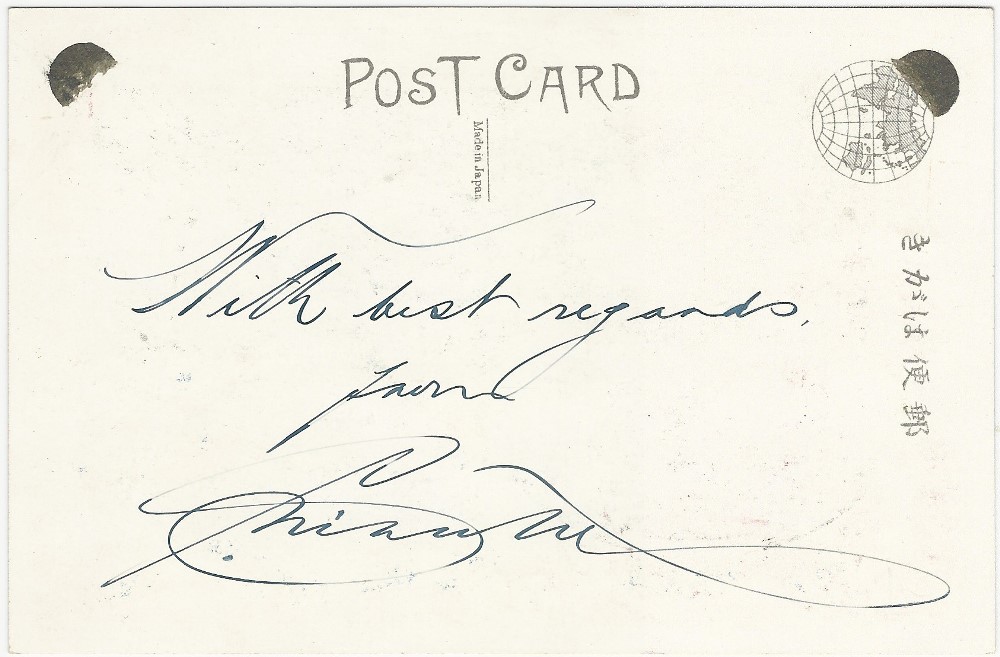 POST CARD
Made in Japan
きがは便郵
With best regards,
from